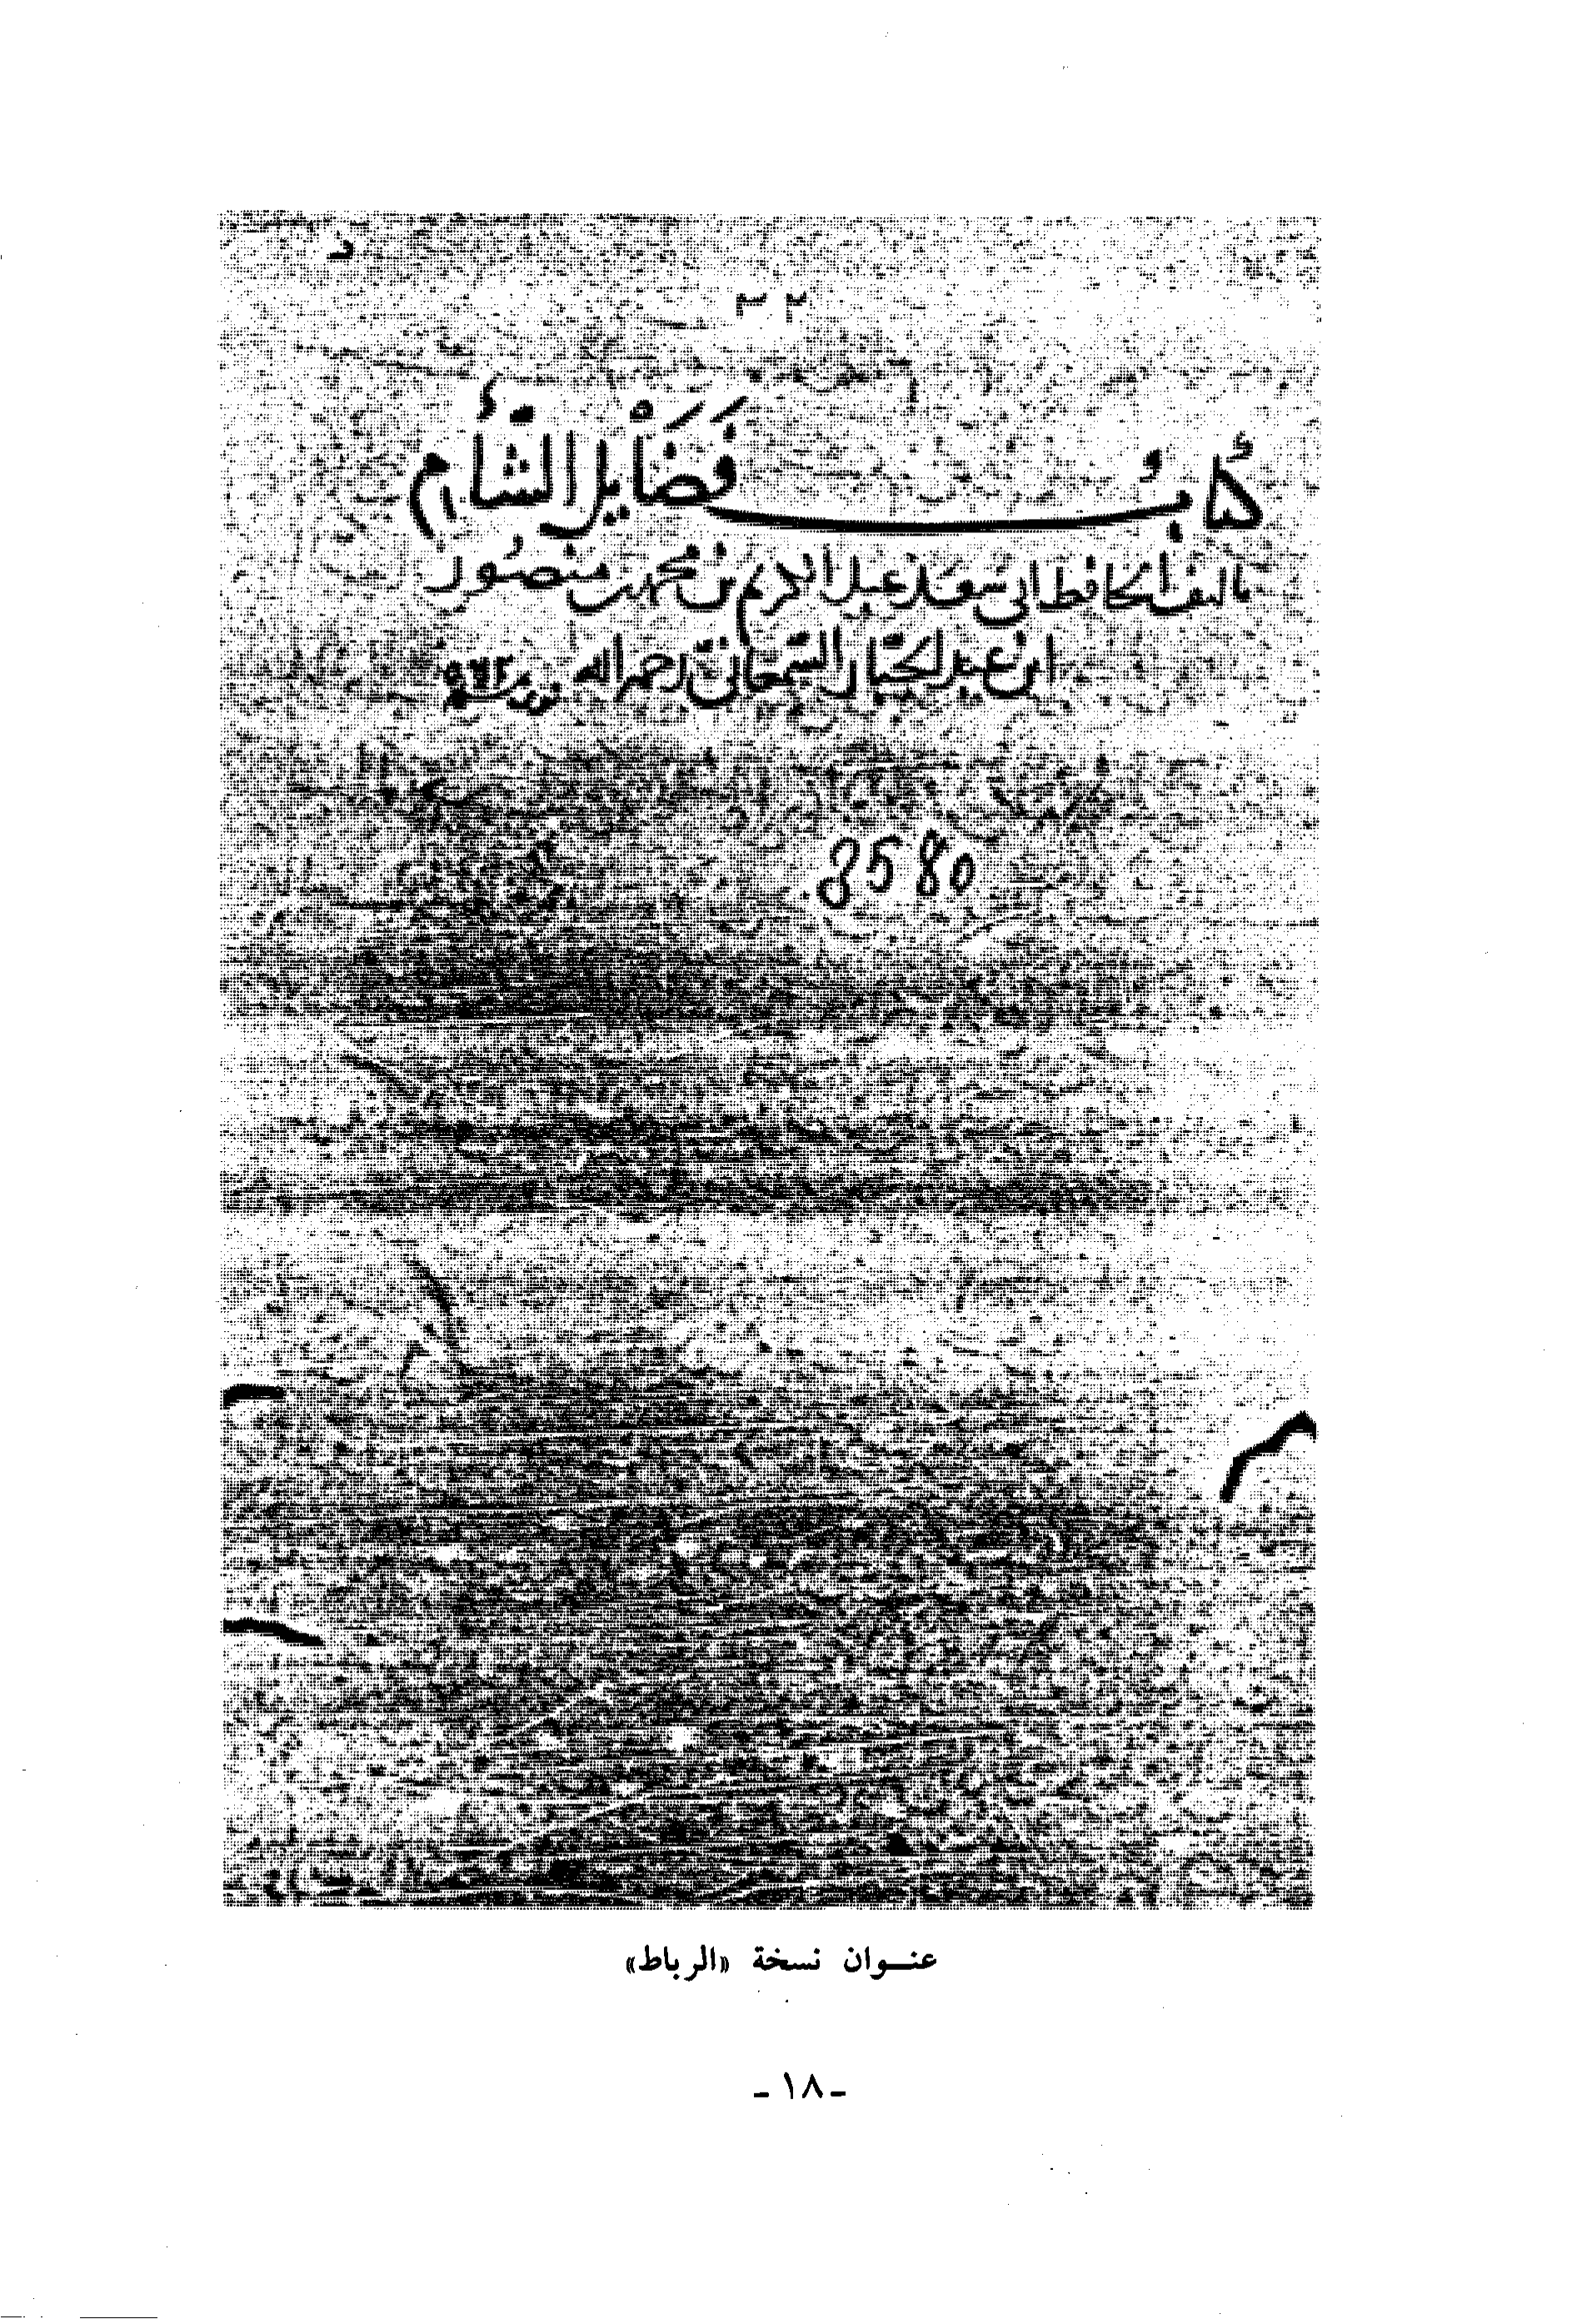 كتابُ فَضَايْل الشَّأم
تاليف الحافظ ابي سَعد عبد الكريم بن محمد بن منصُور
ابن عبد الجبار السَّمعاني رحمه الله
8580
عنـوان نسخة «الرباط»
- ١٨ -